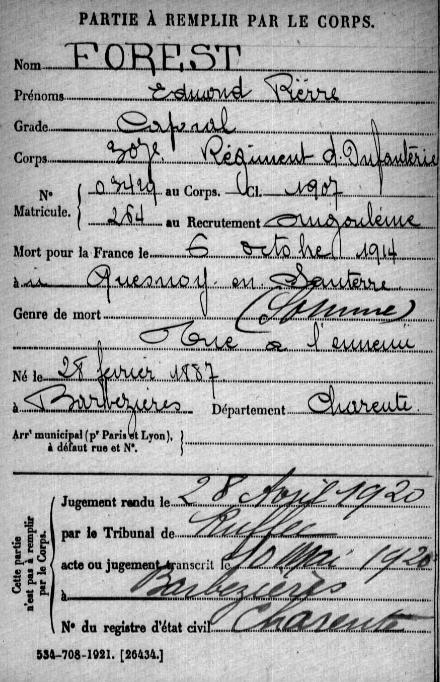 PARTIE À REMPLIR PAR LE CORPS.
Nom FOREST
Prénoms Edmond Pierre
Grade Caporal
Corps 307e Régiment d'Infanterie
N° Matricule. 03429 au Corps. Cl. 1907
264 au Recrutement Angoulême
Mort pour la France le 6 octobre 1914
à Quesnoy en Santerre
(Somme)
Genre de mort
Tué à l'ennemi
Né le 28 février 1887
à Barbezières Département Charente
Arrt municipal (pr Paris et Lyon),
à défaut rue et N°.
Cette partie n'est pas à remplir par le Corps.
Jugement rendu le 28 Avril 1920
par le Tribunal de Ruffec
acte ou jugement transcrit le 10 Mai 1920
à Barbezières
N° du registre d'état civil Charente
534-708-1921. [26434.]